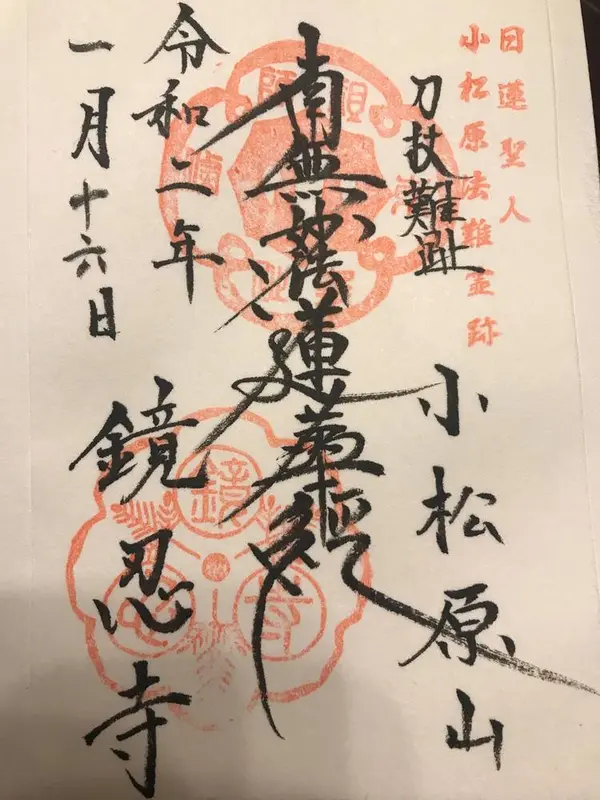 日蓮聖人
小松原法難霊跡
刀杖難趾
小松原山
南無妙法蓮華経
令和二年
一月十六日
鏡忍寺
鏡
忍
寺